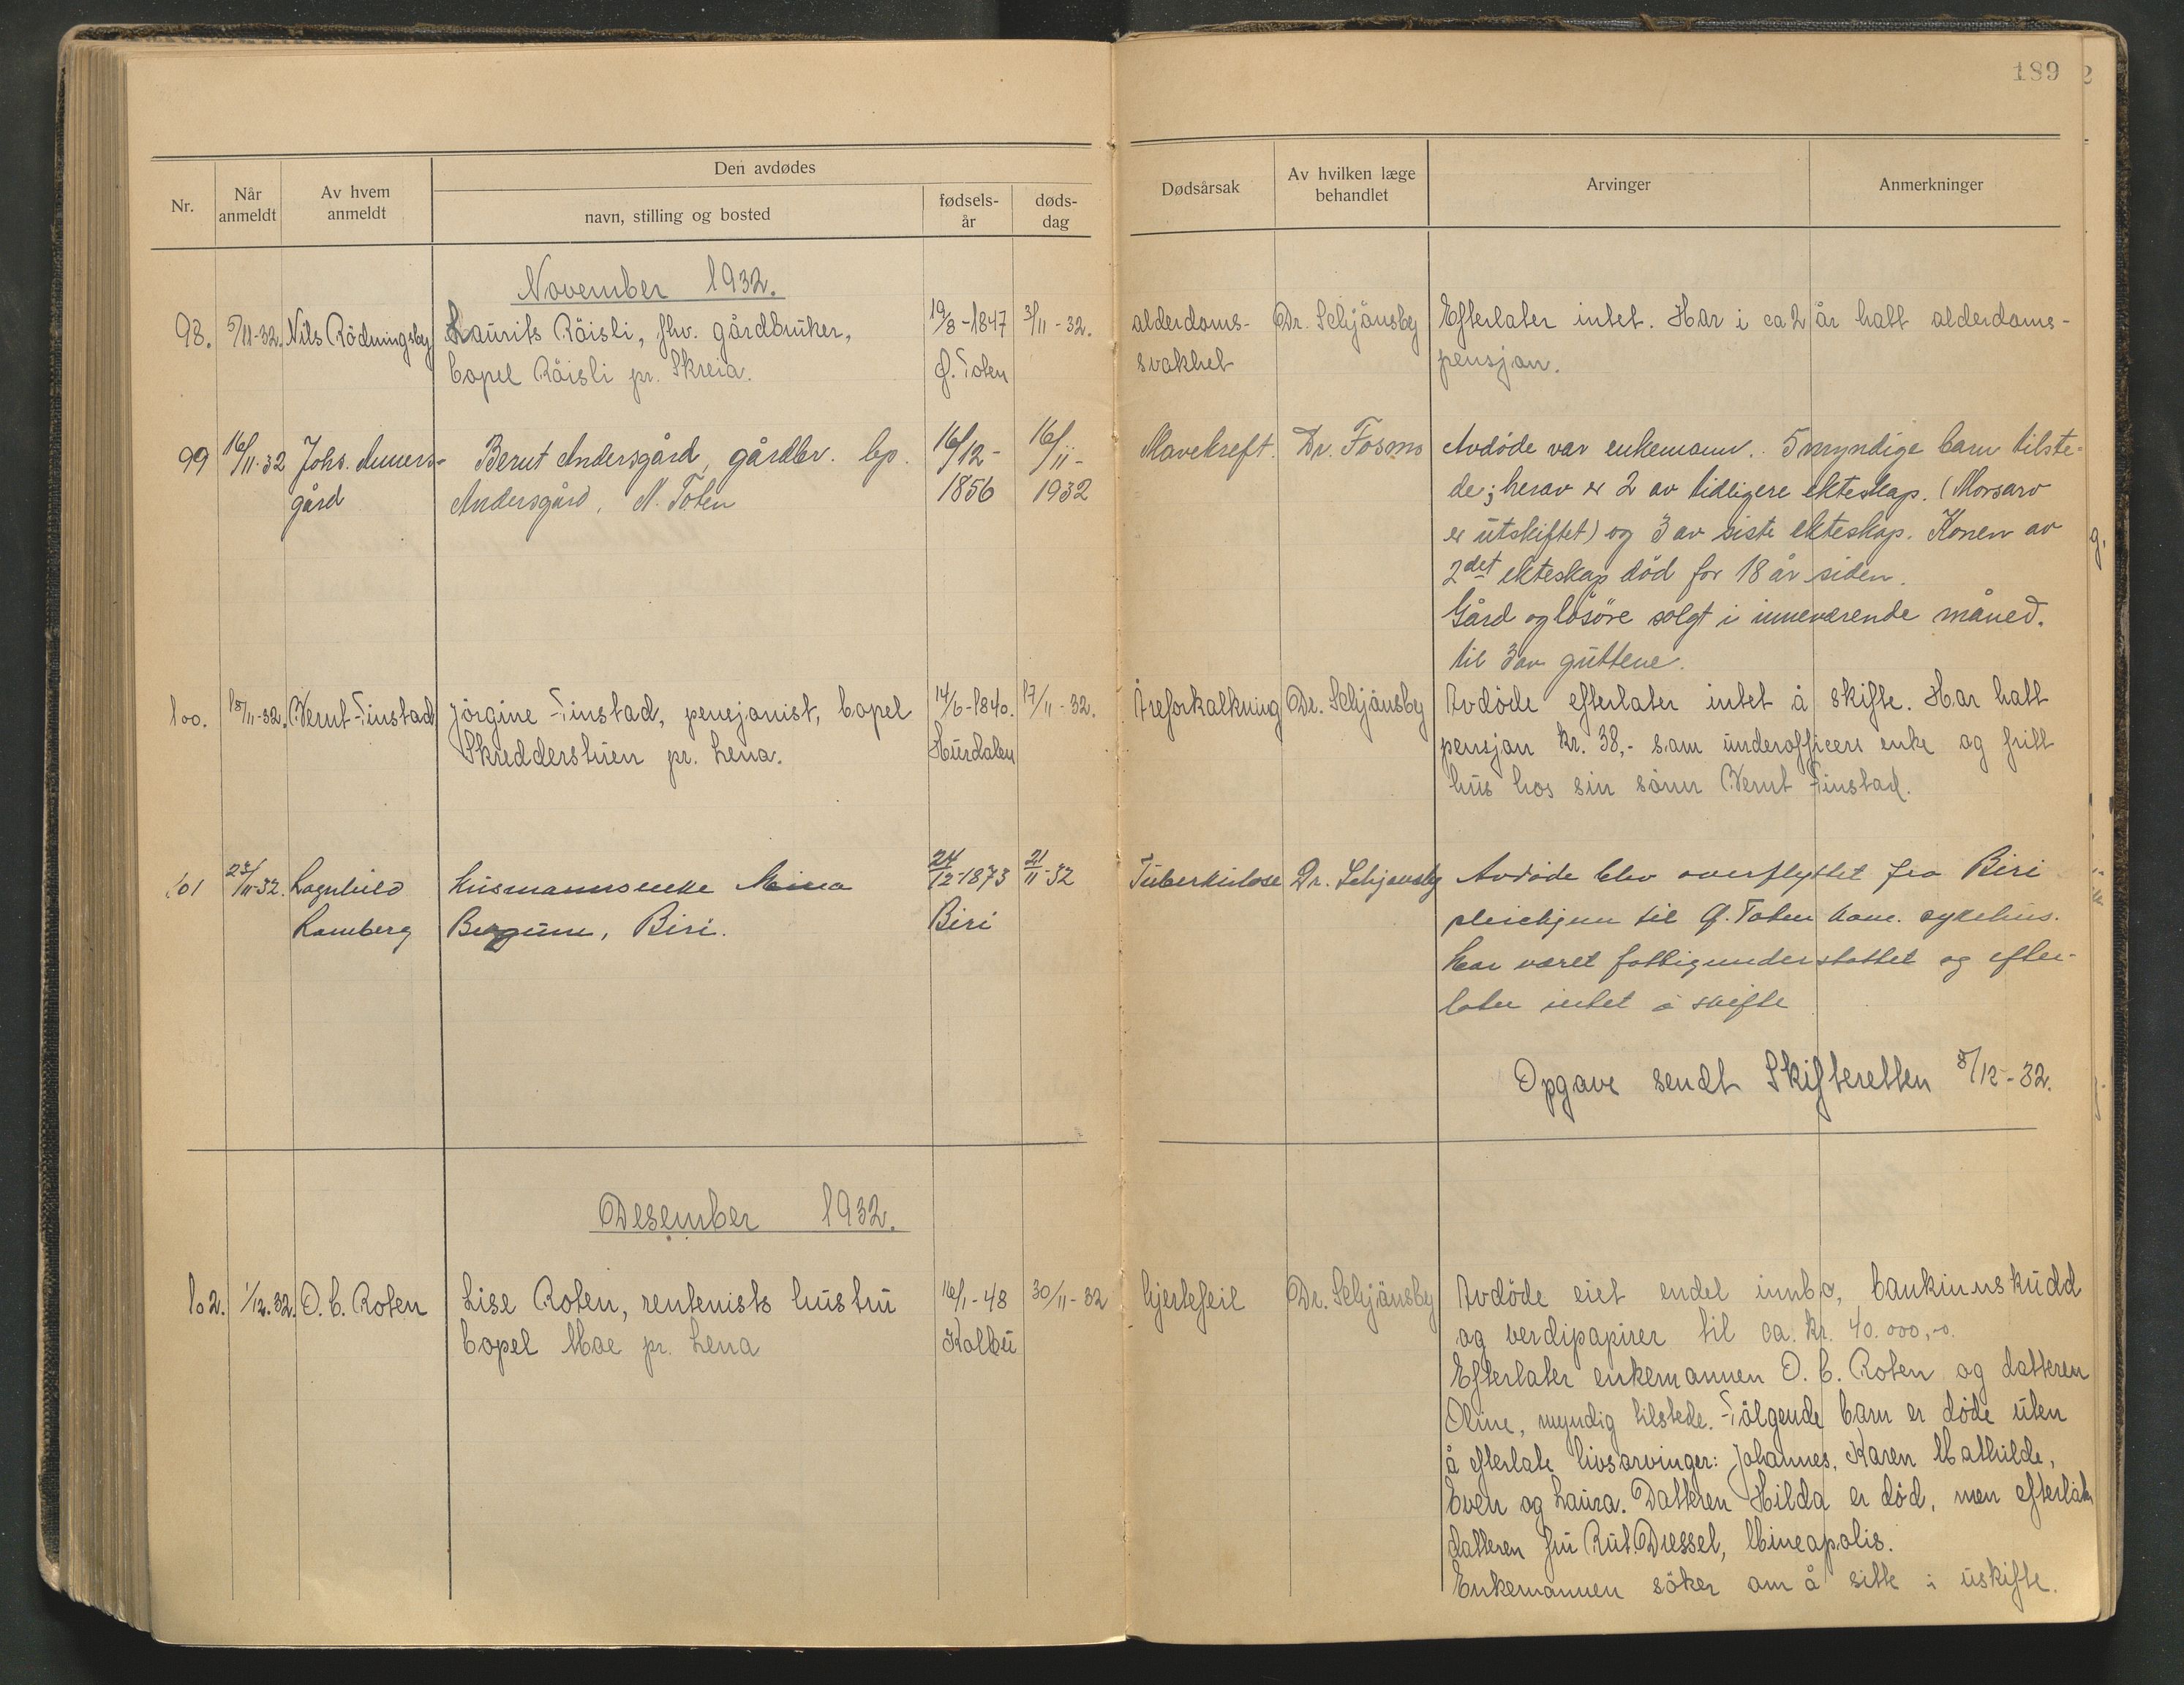 189
Nr.
Når anmeldt
Av hvem anmeldt
Den avdødes
navn, stilling og bosted
fødsels-år
døds-dag
Dødsårsak
Av hvilken læge behandlet
Arvinger
Anmerkninger
November 1932.
98. 5/11-32. Nils Rödningsby Laurits Röisli, fhv. gårdbruker, 19/8-1847 3/11-32. alderdoms- Dr. Schjånsby Efterlater intet. Har i ca 2 år hatt alderdoms-
bopel Röisli pr. Skreia. Ø. Toten svakhet pensjon.
99 16/11-32 Johs. Anners- Bernt Andersgård, gårdbr. bp. 16/12- 16/11- Mavekreft. Dr. Fosmo Avdöde var enkemann. 5 myndige barn tilste-
gård Andersgård, N. Toten 1856 1932 de; herav er 2 av tidligere ekteskap. (Morsarv
er utskiftet) og 3 av siste ekteskap. Konen av
2det ekteskap död for 18 år siden.
Gård og lösöre solgt i inneværende måned.
til 3 av guttene.
100. 18/11-32. Bernt Finstad Jörgine Finstad, pensjonist, bopel 14/6-1840. 17/11-32. Åreforkalkning Dr. Schjånsby Avdöde efterlater intet å skifte. Har hatt
Skredderstuen pr. Lena. Hurdalen pensjon kr. 38,- som underofficers enke og fritt
hus hos sin sönn Bernt Finstad.
101 23/11-32. Ragnhild husmannsenke Mina 24/12-1873 21/11-32 Tuberkulose Dr. Schjånsby Avdöde blev overflyttet fra Biri
Ramberg Burgum, Biri. Biri pleiehjem til Ø. Toten kom. sykehus.
Har været fattigunderstöttet og efter-
later intet å skifte
Opgave sendt Skifteretten 5/12-32.
Desember 1932.
102. 1/12.32. O. E. Roten Lise Roten, rentenists hustru 16/1-48 30/11-32 hjertefeil Dr. Schjånsby Avdöde eiet endel innbo, bankinnskudd
bopel Moe pr. Lena Kolbu og verdipapirer til ca. kr. 40.000,-.
Efterlater enkemannen O. E. Roten og datteren
Oline, myndig tilstede. Fölgende barn er döde uten
å efterlate livsarvinger: Johannes, Karen Mathilde,
Even og Laura. Datteren Hilda er död, men efterlater
datteren fru Rut. Dressel, Mineapolis.
Enkemannen söker om å sitte i uskifte.